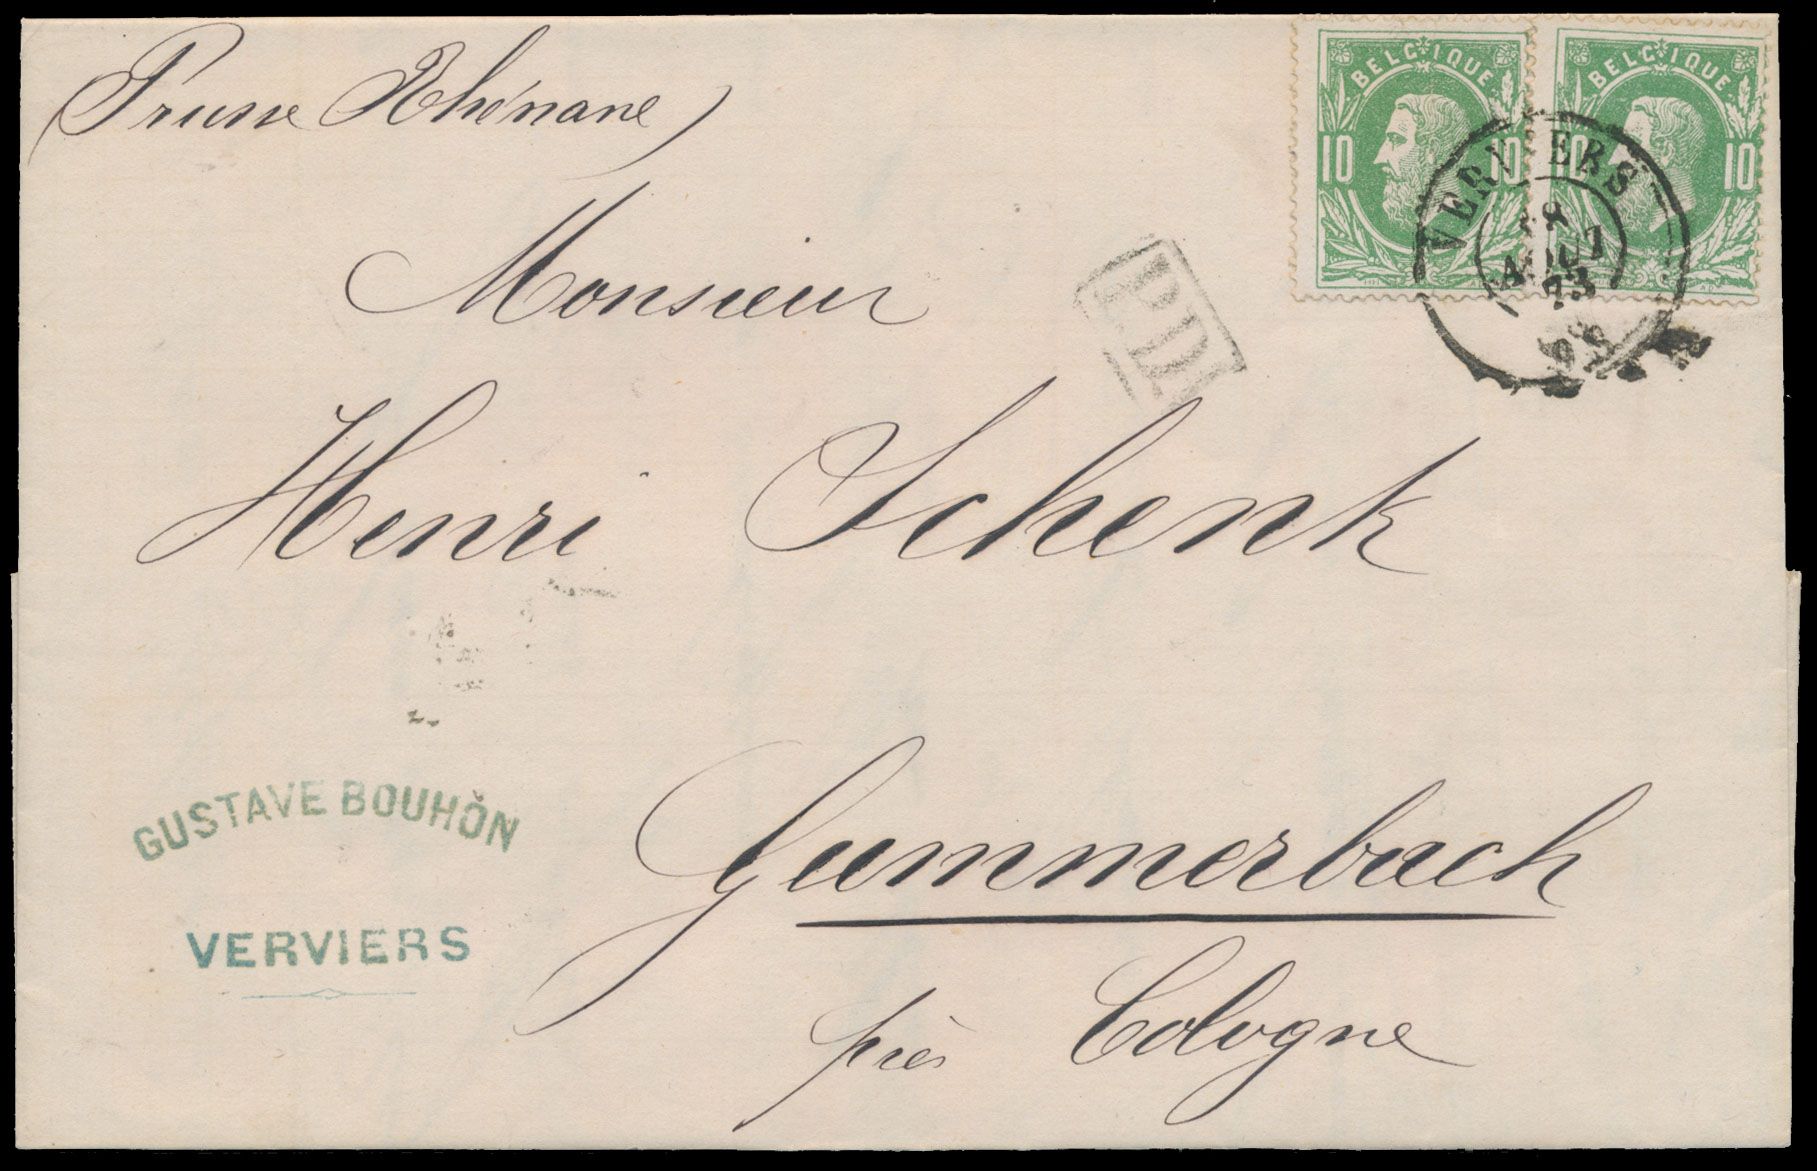 Prusse Rhénane
BELGIQUE
10 10
BELGIQUE
10 10
VERVIERS
AOUT
73
PD
Monsieur
Henri Schenk
GUSTAVE BOUHON
VERVIERS
Gummerbach
près Cologne